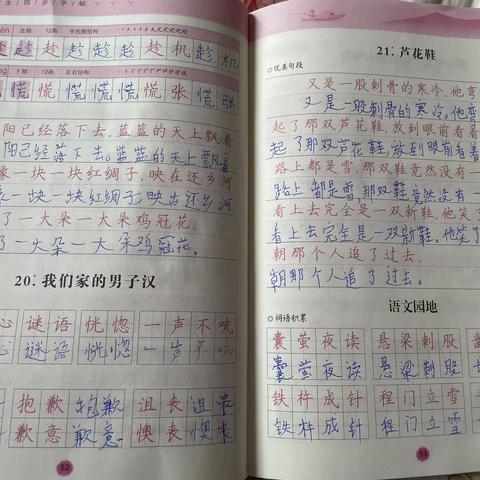 生同步字帖
全部 12画 半包围结构
趁 趁 趁 趁 趁 机 趁 机
1部 12画 左右结构
慌 慌 慌 慌 慌 慌 张 慌 张
阳已经落下去。蓝蓝的天上飘着
阳已经落下去。蓝蓝的天上飘着
一块一块红绸子,映在还乡河
一块一块红绸子,映在还乡河
了一大朵一大朵鸡冠花。
了一大朵一大朵鸡冠花。
20.* 我们家的男子汉
心 谜语 恍惚 一声不吭
心 谜语 恍惚 一声不吭
抱歉 抱歉 沮丧 沮丧
歉意 歉意 懊丧 懊丧
52
21.* 芦花鞋
优美句段
又是一股刺骨的寒冷。他弯
又是一股刺骨的寒冷。他弯
起了那双芦花鞋,放到眼前看着
起了那双芦花鞋,放到眼前看着
路上都是雪,那双鞋竟然没有一
路上都是雪,那双鞋竟然没有一
看上去完全是一双新鞋。他笑了
看上去完全是一双新鞋。他笑了
朝那个人追了过去。
朝那个人追了过去。
语文园地
词语积累
囊萤夜读 悬梁刺股
囊萤夜读 悬梁刺股
铁杵成针 程门立雪
铁杵成针 程门立雪
53